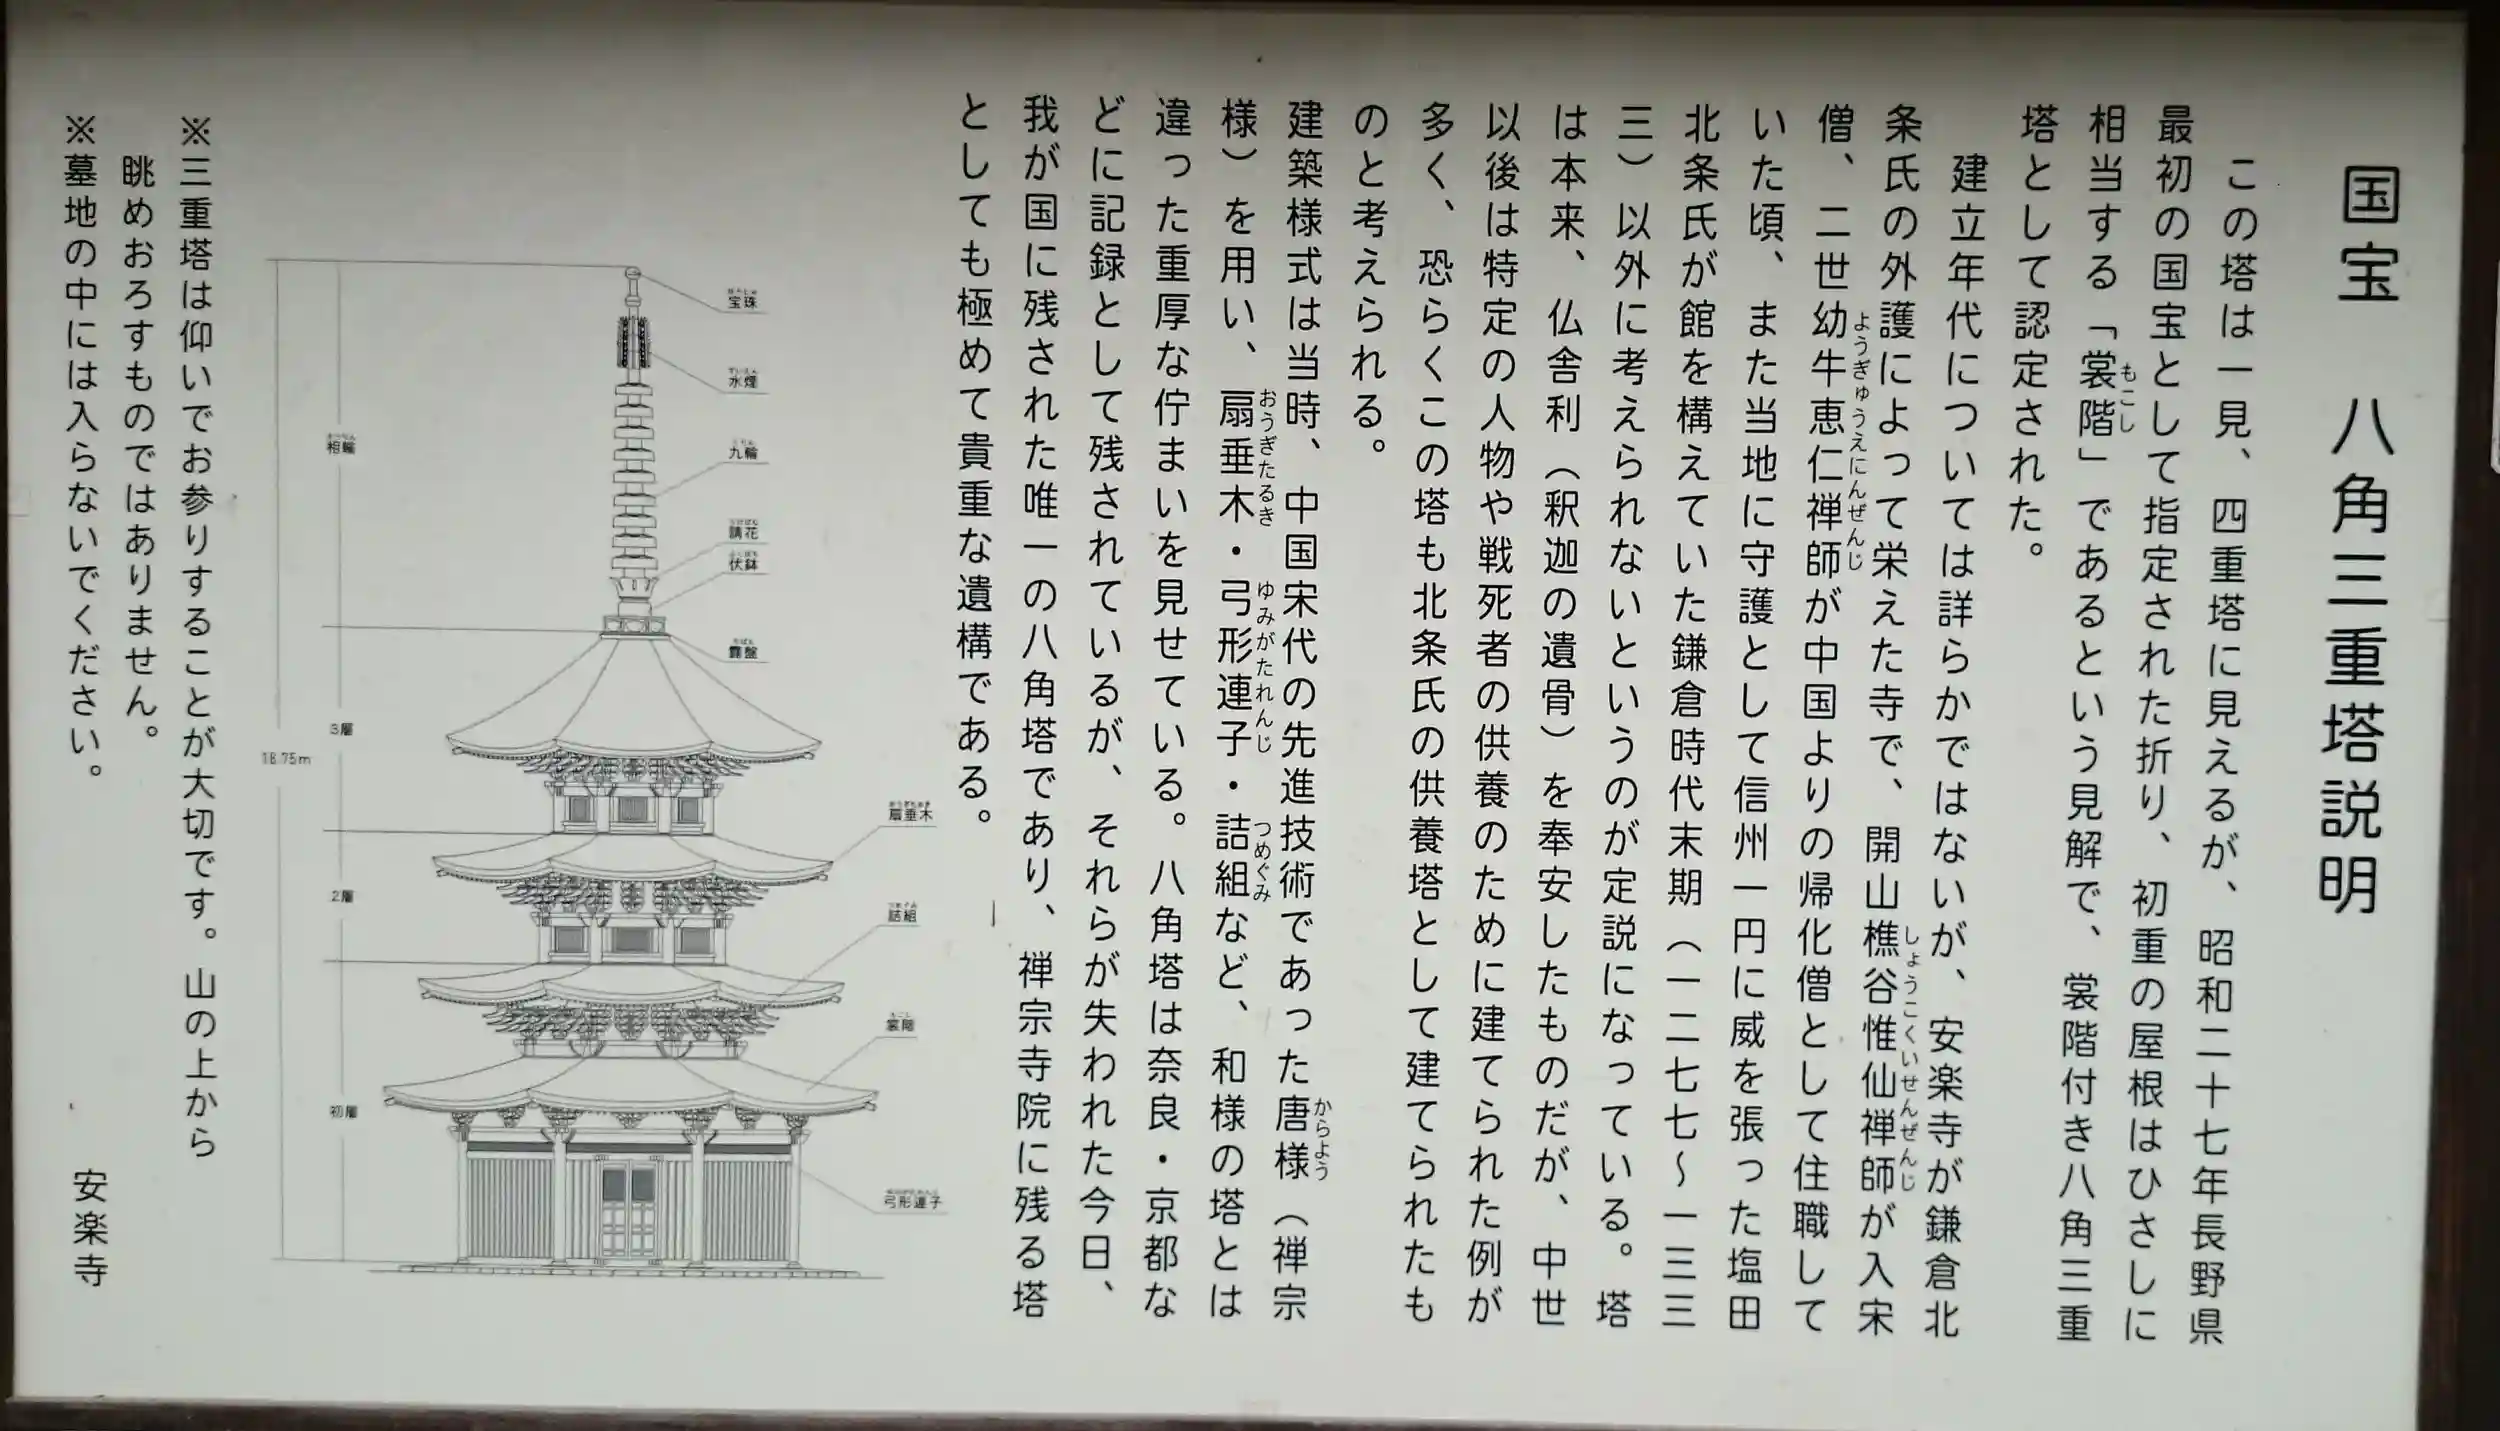 国宝　八角三重塔説明
この塔は一見、四重塔に見えるが、昭和二十七年長野県
最初の国宝として指定された折り、初重の屋根はひさしに
相当する「裳階」であるという見解で、裳階付き八角三重
もこし
塔として認定された。
建立年代については詳らかではないが、安楽寺が鎌倉北
条氏の外護によって栄えた寺で、開山樵谷惟仙禅師が入宋
しょうこくいせんぜんじ
僧、二世幼牛恵仁禅師が中国よりの帰化僧として住職して
ようぎゅうえにんぜんじ
いた頃、また当地に守護として信州一円に威を張った塩田
北条氏が館を構えていた鎌倉時代末期（一二七七〜一三三
三）以外に考えられないというのが定説になっている。塔
は本来、仏舎利（釈迦の遺骨）を奉安したものだが、中世
以後は特定の人物や戦死者の供養のために建てられた例が
多く、恐らくこの塔も北条氏の供養塔として建てられたも
のと考えられる。
建築様式は当時、中国宋代の先進技術であった唐様（禅宗
からよう
様）を用い、扇垂木・弓形連子・詰組など、和様の塔とは
おうぎたるき
ゆみがたれんじ
つめぐみ
違った重厚な佇まいを見せている。八角塔は奈良・京都な
どに記録として残されているが、それらが失われた今日、
我が国に残された唯一の八角塔であり、禅宗寺院に残る塔
としても極めて貴重な遺構である。
宝珠
水煙
九輪
請花
伏鉢
露盤
扇垂木
詰組
裳階
弓形連子
相輪
3層
2層
初層
18.75m
※三重塔は仰いでお参りすることが大切です。山の上から
眺めおろすものではありません。
※墓地の中には入らないでください。
安楽寺